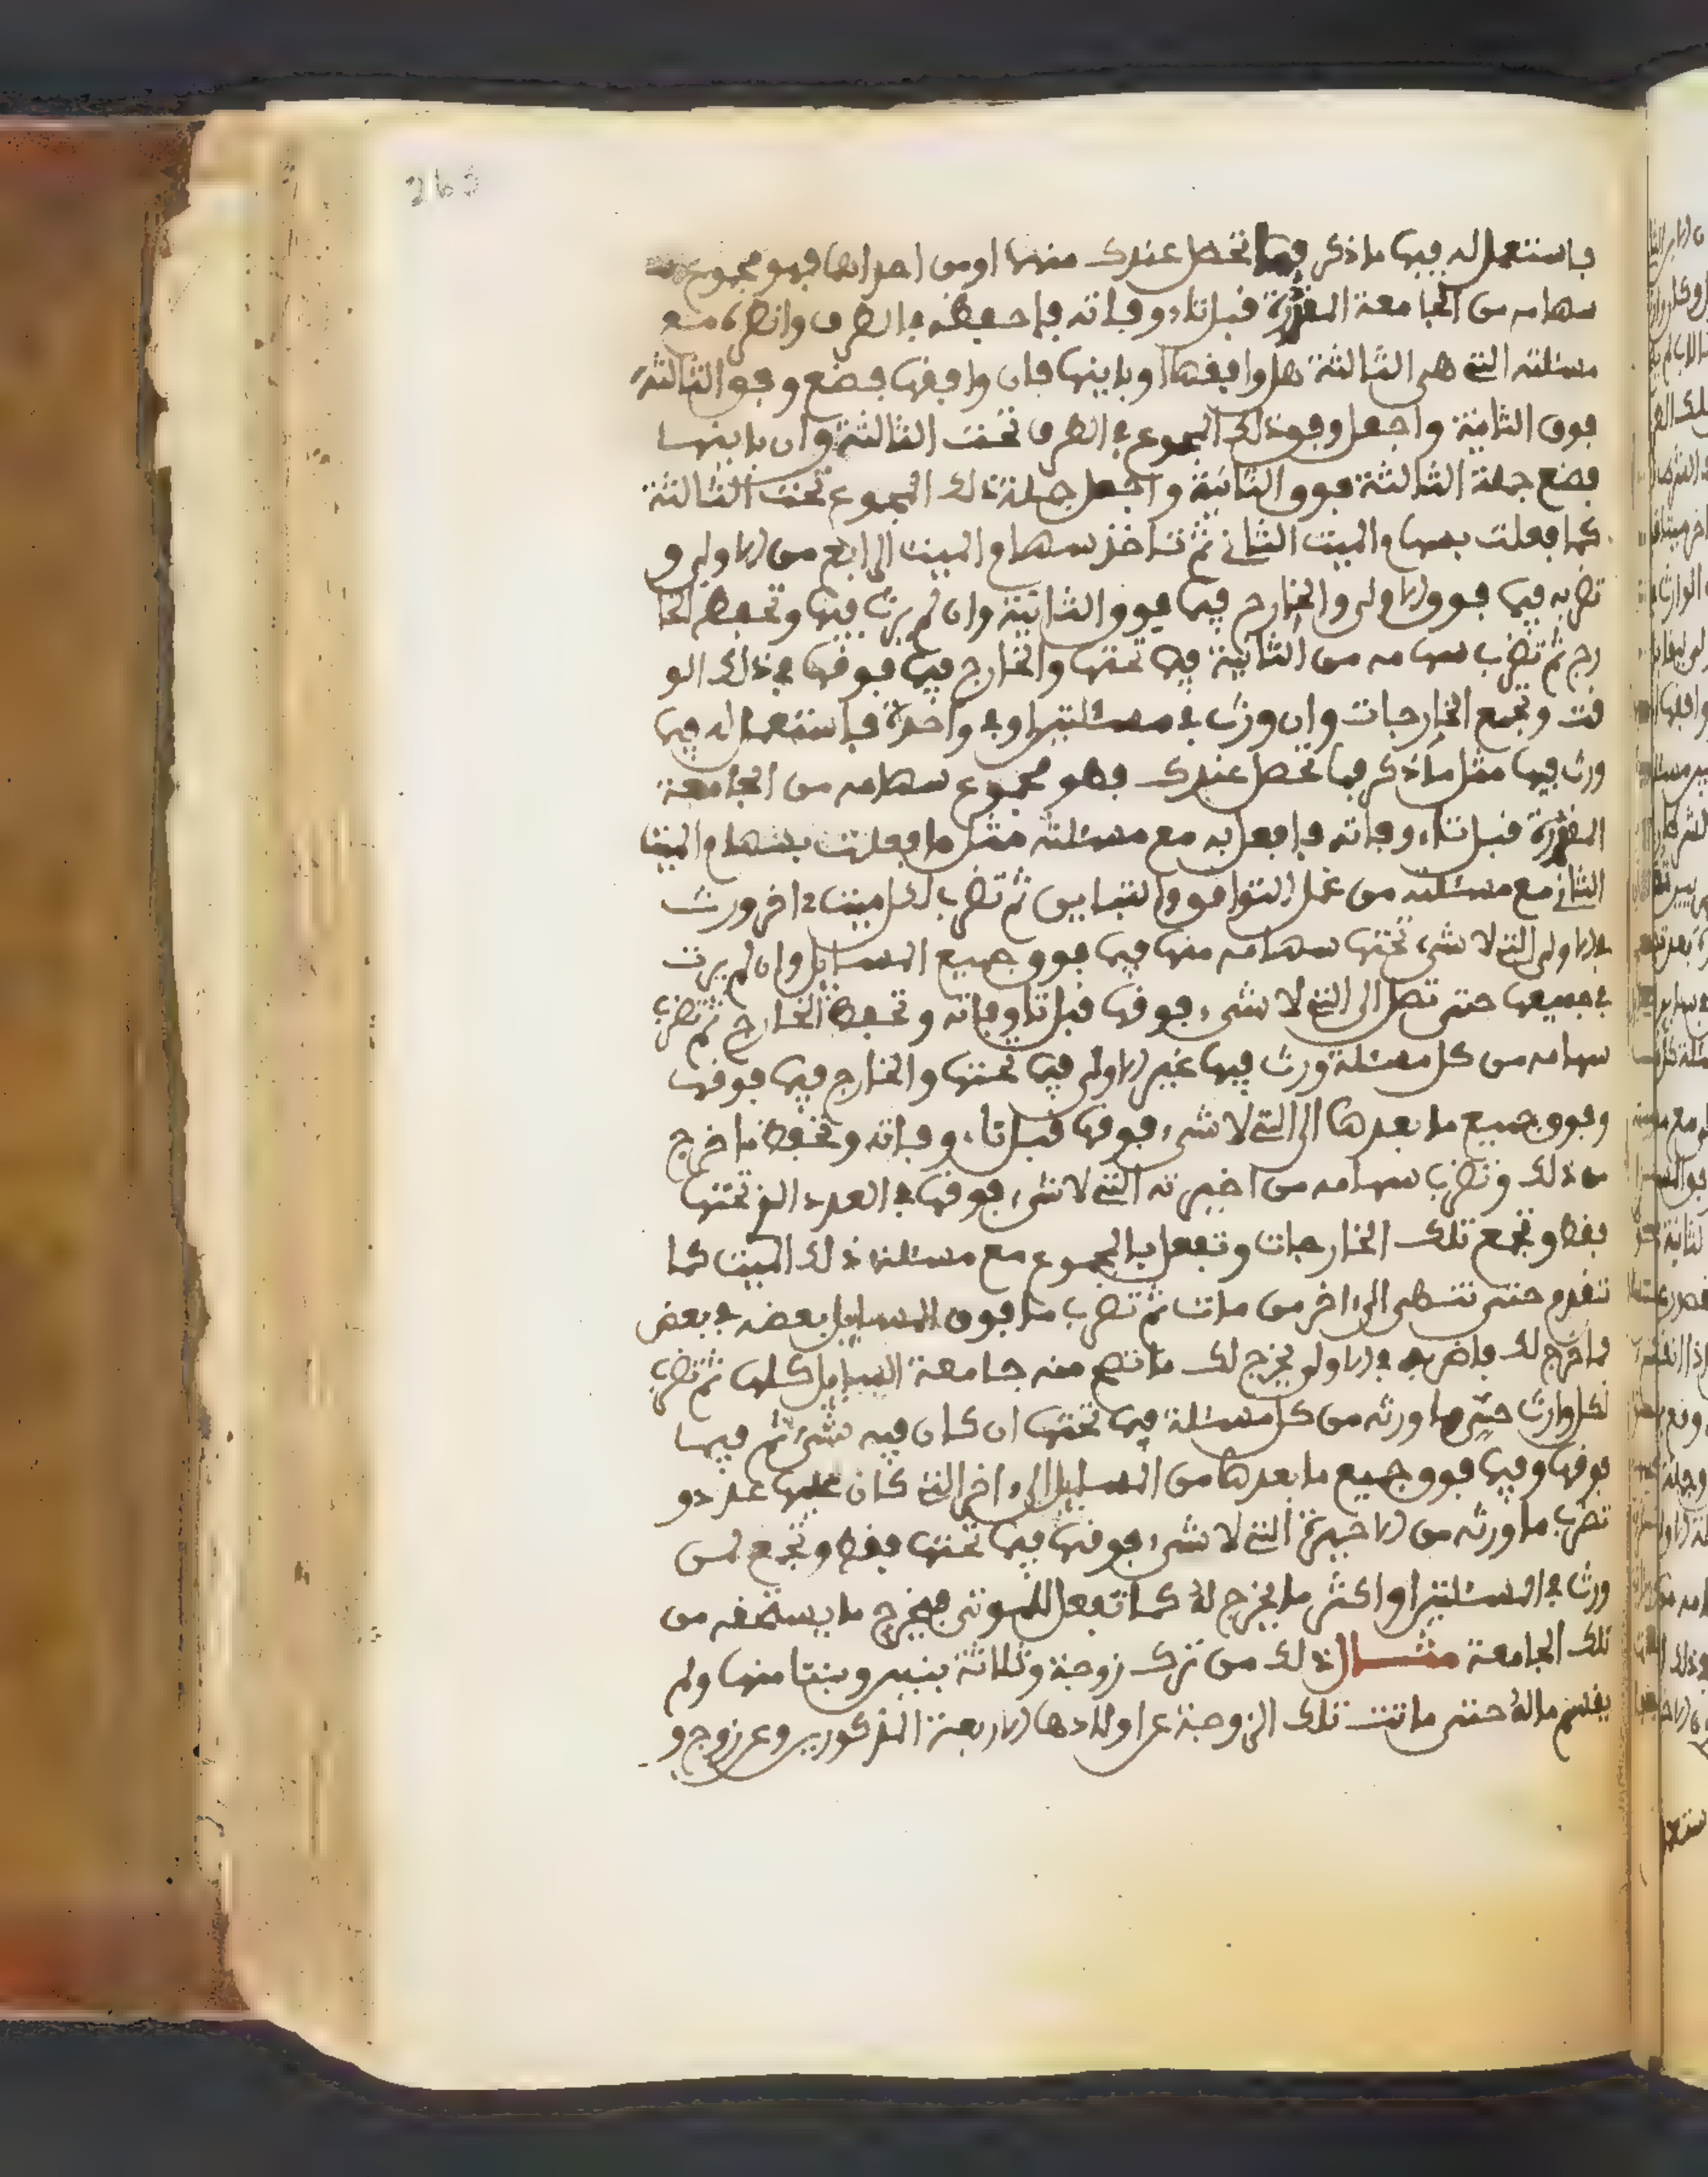 263
فاستعمل له فيها ما ذكر فما تحصل عندك منهما او من احداهما فهو مجموع
سهامه من الجامعة المقررة قبل تاء وفاته فاحفظه في الطرف وانظره مع
مسئلته التي هي الثالثة هل وافقها او باينها فان وافقها فضع وفق الثالثة
فوق الثانية واجعل وفق ذلك المجموع في الطرف تحت الثالثة وان باينها
فضع جملة الثالثة فوق الثانية واجعل جملة ذلك المجموع تحت الثالثة
كما فعلت بسهام الميت الثاني ثم تاخذ سهام الميت الرابع من الاولى و
تضربه فيما فوق الاولى والخارج فيما فوق الثانية وان لم يرث فيها وتحفظ الخا
رج ثم تضرب سهامه من الثانية فيما تحتها والخارج فيما فوقها في ذلك الو
قت وتجمع الخارجات وان ورث في مسئلتين او في واحدة فاستعمل له فيما
ورث فيها مثل ما ذكر فما تحصل عندك فهو مجموع سهامه من الجامعة
المقررة قبل تاء وفاته فافعل به مع مسئلته مثل ما فعلت بسهام الميت
الثاني مع مسئلته من عمل التوافق والتباين ثم تضرب لكل ميت ءاخر ورث
في الاولى التي لا شيء تحتها سهامه منها فيما فوق جميع المسايل وان لم يرث
في جميعها حتى تصل الى التي لا شيء فوقها قبل تا وفاته وتحفظ الخارج ثم تضرب
سهامه من كل مسئلة ورث فيها غير الاولى فيما تحتها والخارج فيما فوقها
وفوق جميع ما بعدها الى التي لا شيء فوقها قبل تاء وفاته وتحفظ ما خرج
من ذلك وتضرب سهامه من اخيرته التي لا شيء فوقها في العدد الذي تحتها
فقط وتجمع تلك الخارجات وتفعل بالمجموع مع مسئلة ذلك الميت كما
تقدم حتى تنتهي الى ءاخر من مات ثم تضرب ما فوق المسايل بعضه في بعض
فما خرج لك فاضربه في الاولى يخرج لك ما تصح منه جامعة المسايل كلها ثم تضرب
لكل وارث حي ما ورثه من كل مسئلة فيما تحتها ان كان فيه شيء ثم فيما
فوقها وفيما فوق جميع ما بعدها من المسايل الى ءاخر التي كان عليها عدد و
تضرب ما ورثه من الاخيرة التي لا شيء فوقها فيما تحتها فقط وتجمع لمن
ورث في المسئلتين او اكثر ما يخرج له كما تفعل للموتى فيخرج ما يستحقه من
تلك الجامعة مثال ذلك من ترك زوجة وثلاثة بنين وبنتا منها ولم
يقسم ماله حتى ماتت تلك الزوجة عن اولادها الاربعة المذكورين وعن زوج و